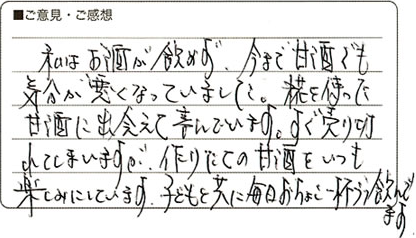 ■ご意見・ご感想
私はお酒が飲めず、今まで甘酒でも
気分が悪くなっていました。糀を使った
甘酒に出会えて喜んでいます。すぐ売り切
れてしまいますが、作りたての甘酒をいつも
楽しみにしています。子どもと共に毎日おちょこ一杯づつ飲んで
ます。